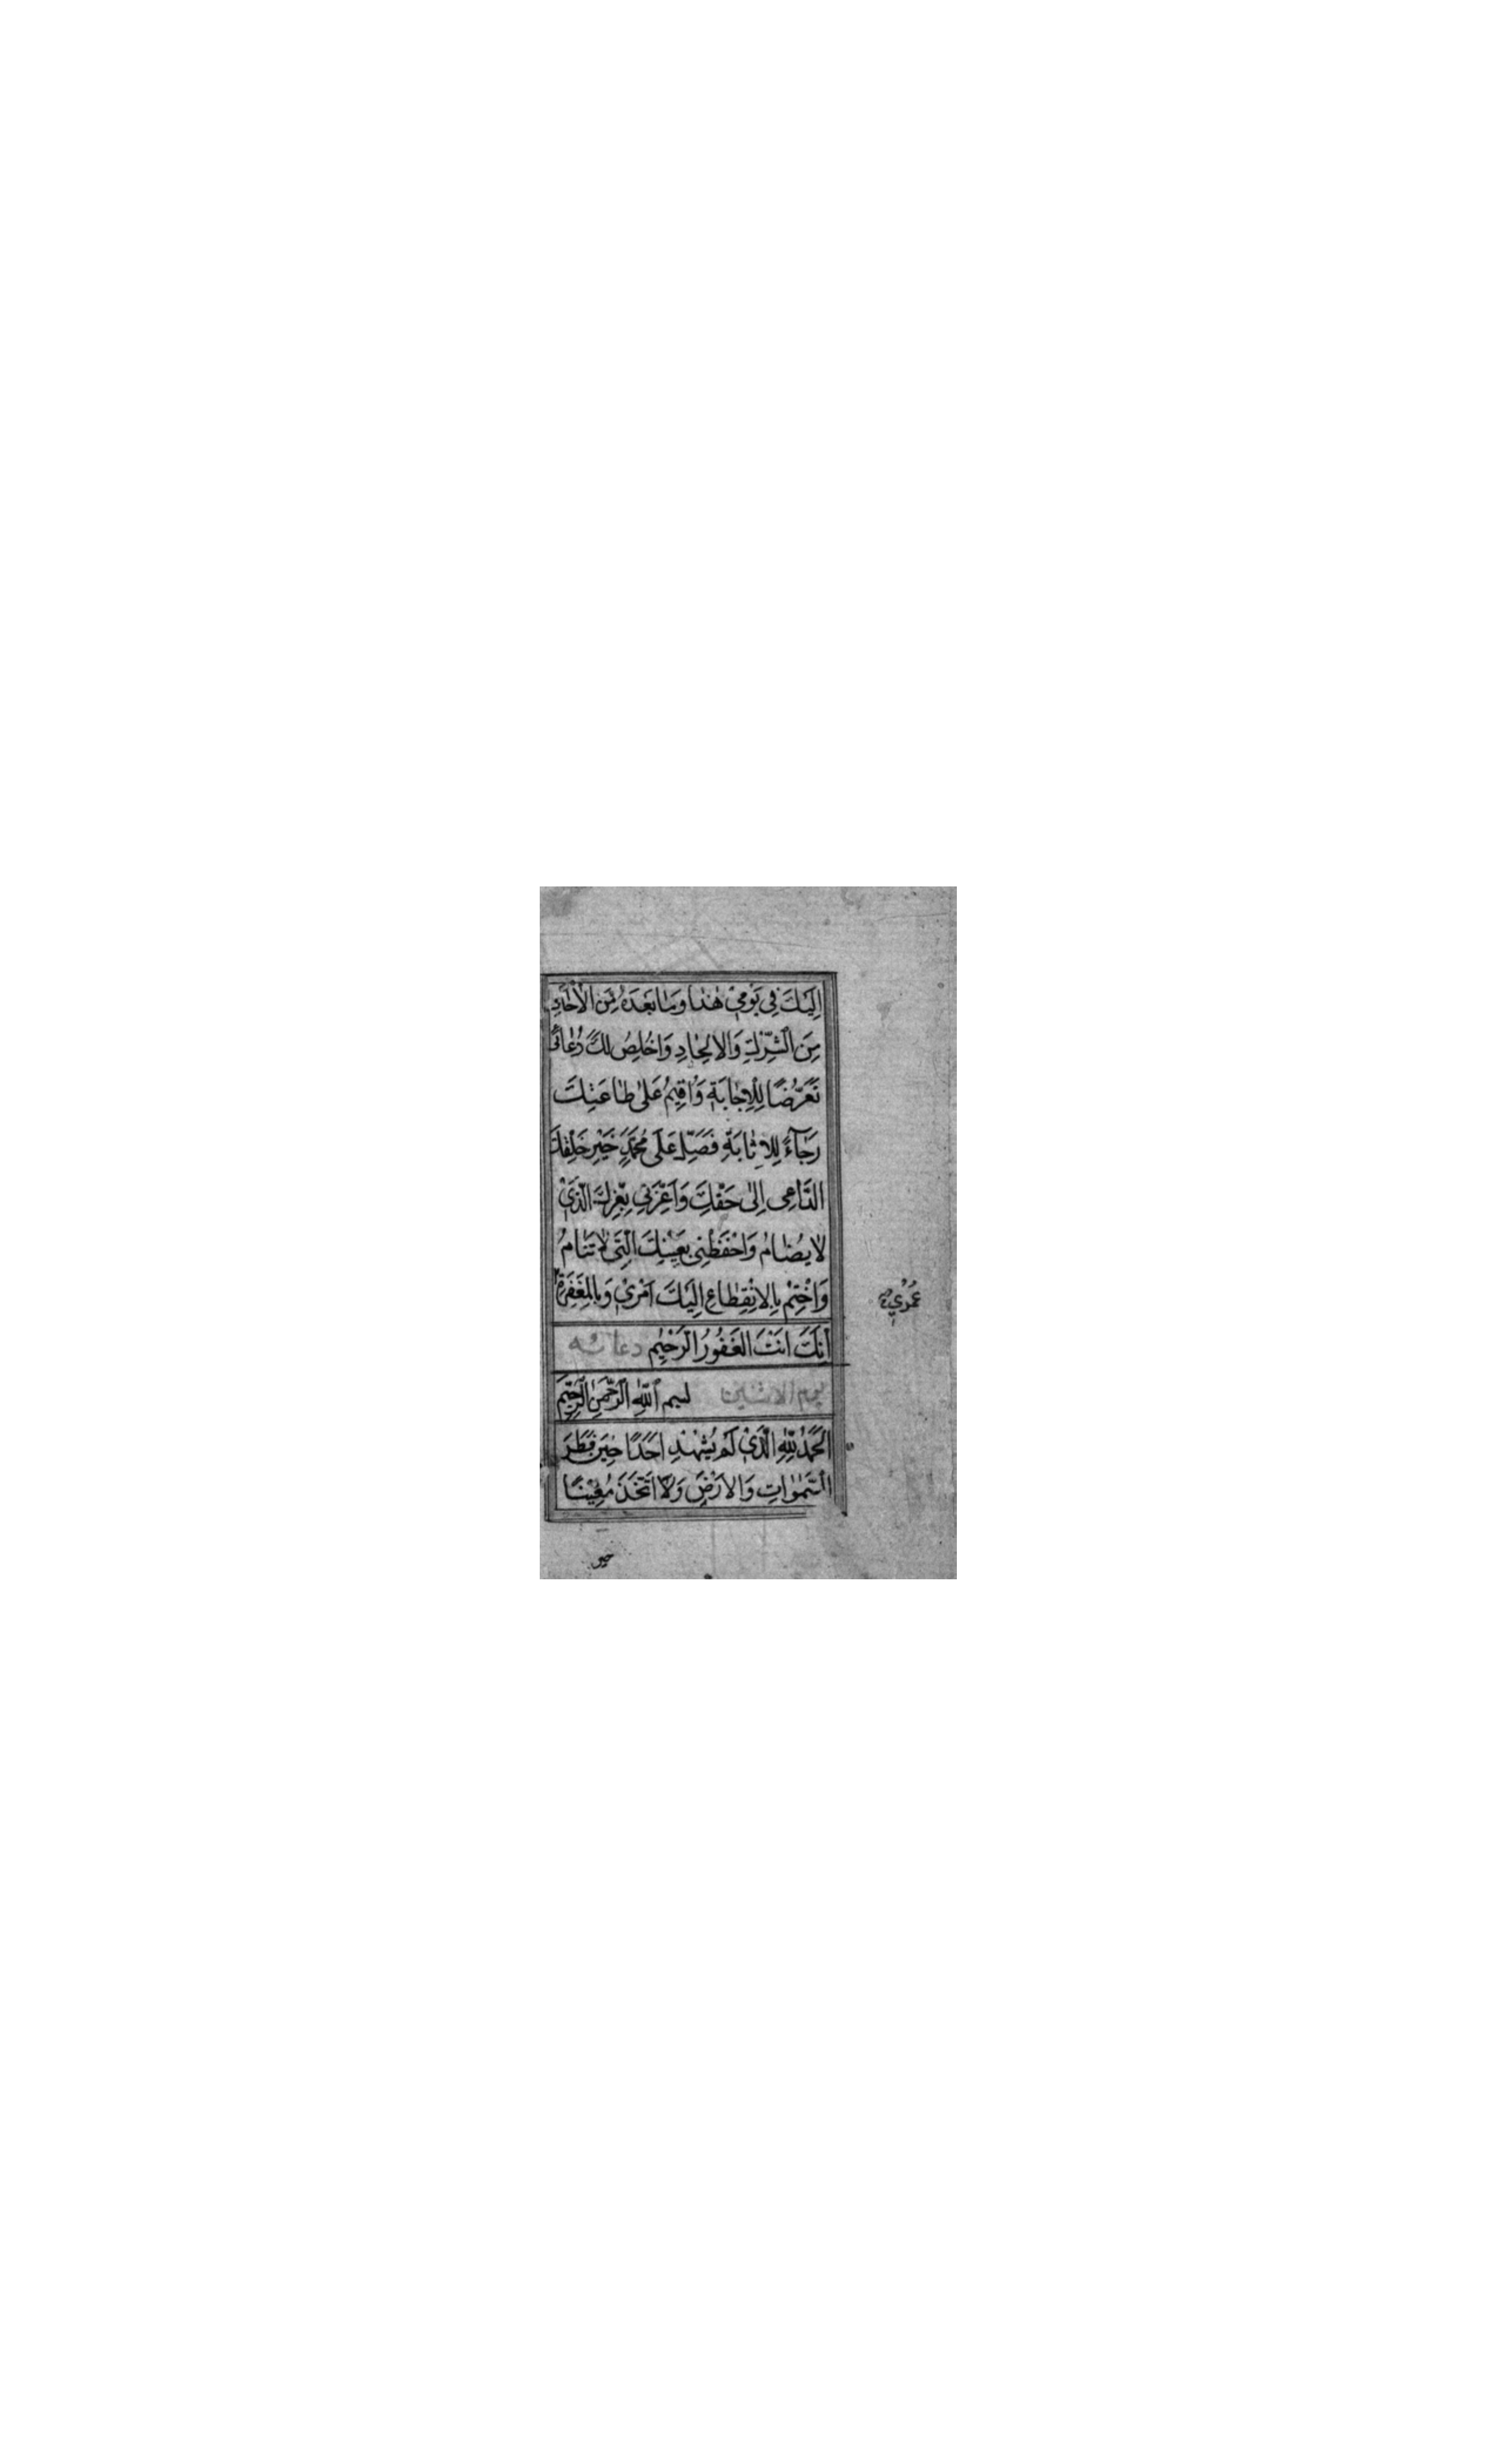 اِلَيْكَ فِي يَوْمِي هٰذا وَمٰا بَعْدَهُ مِنَ الْاٰحٰادِ
مِنَ الشِّرْكِ وَالْاِلْحٰادِ وَاُخْلِصُ لَكَ دُعٰائى
تَعَرُّضًا لِلْاِجٰابَةِ وَاُقِيمُ عَلىٰ طٰاعَتِكَ
رَجٰآءً لِلْاِثٰابَةِ فَصَلِّ عَلىٰ مُحَمَّدٍ خَيْرِ خَلْقِكَ
الدّٰاعِى اِلىٰ حَقِّكَ وَاَعِزَّنِي بِعِزِّكَ الَّذِي
لٰا يُضٰامُ وَاحْفَظْنِى بِعَيْنِكَ الَّتِى لٰا تَنٰامُ
وَاخْتِمْ بِالْاِنْقِطٰاعِ اِلَيْكَ اَمْرِي وَبِالْمَغْفِرَةِ
عُمْرِي صح
اِنَّكَ اَنْتَ الْغَفُورُ الرَّحِيمُ دعائه
يوم الاثنين بسم اللهِ الرَّحْمٰنِ الرَّحِيمِ
اَلْحَمْدُ لِلّٰهِ الَّذِي لَمْ يُشْهِدْ اَحَدًا حِينَ فَطَرَ
السَّمٰوٰاتِ وَالْاَرْضَ وَلَا اتَّخَذَ مُعِيْنًا
حين